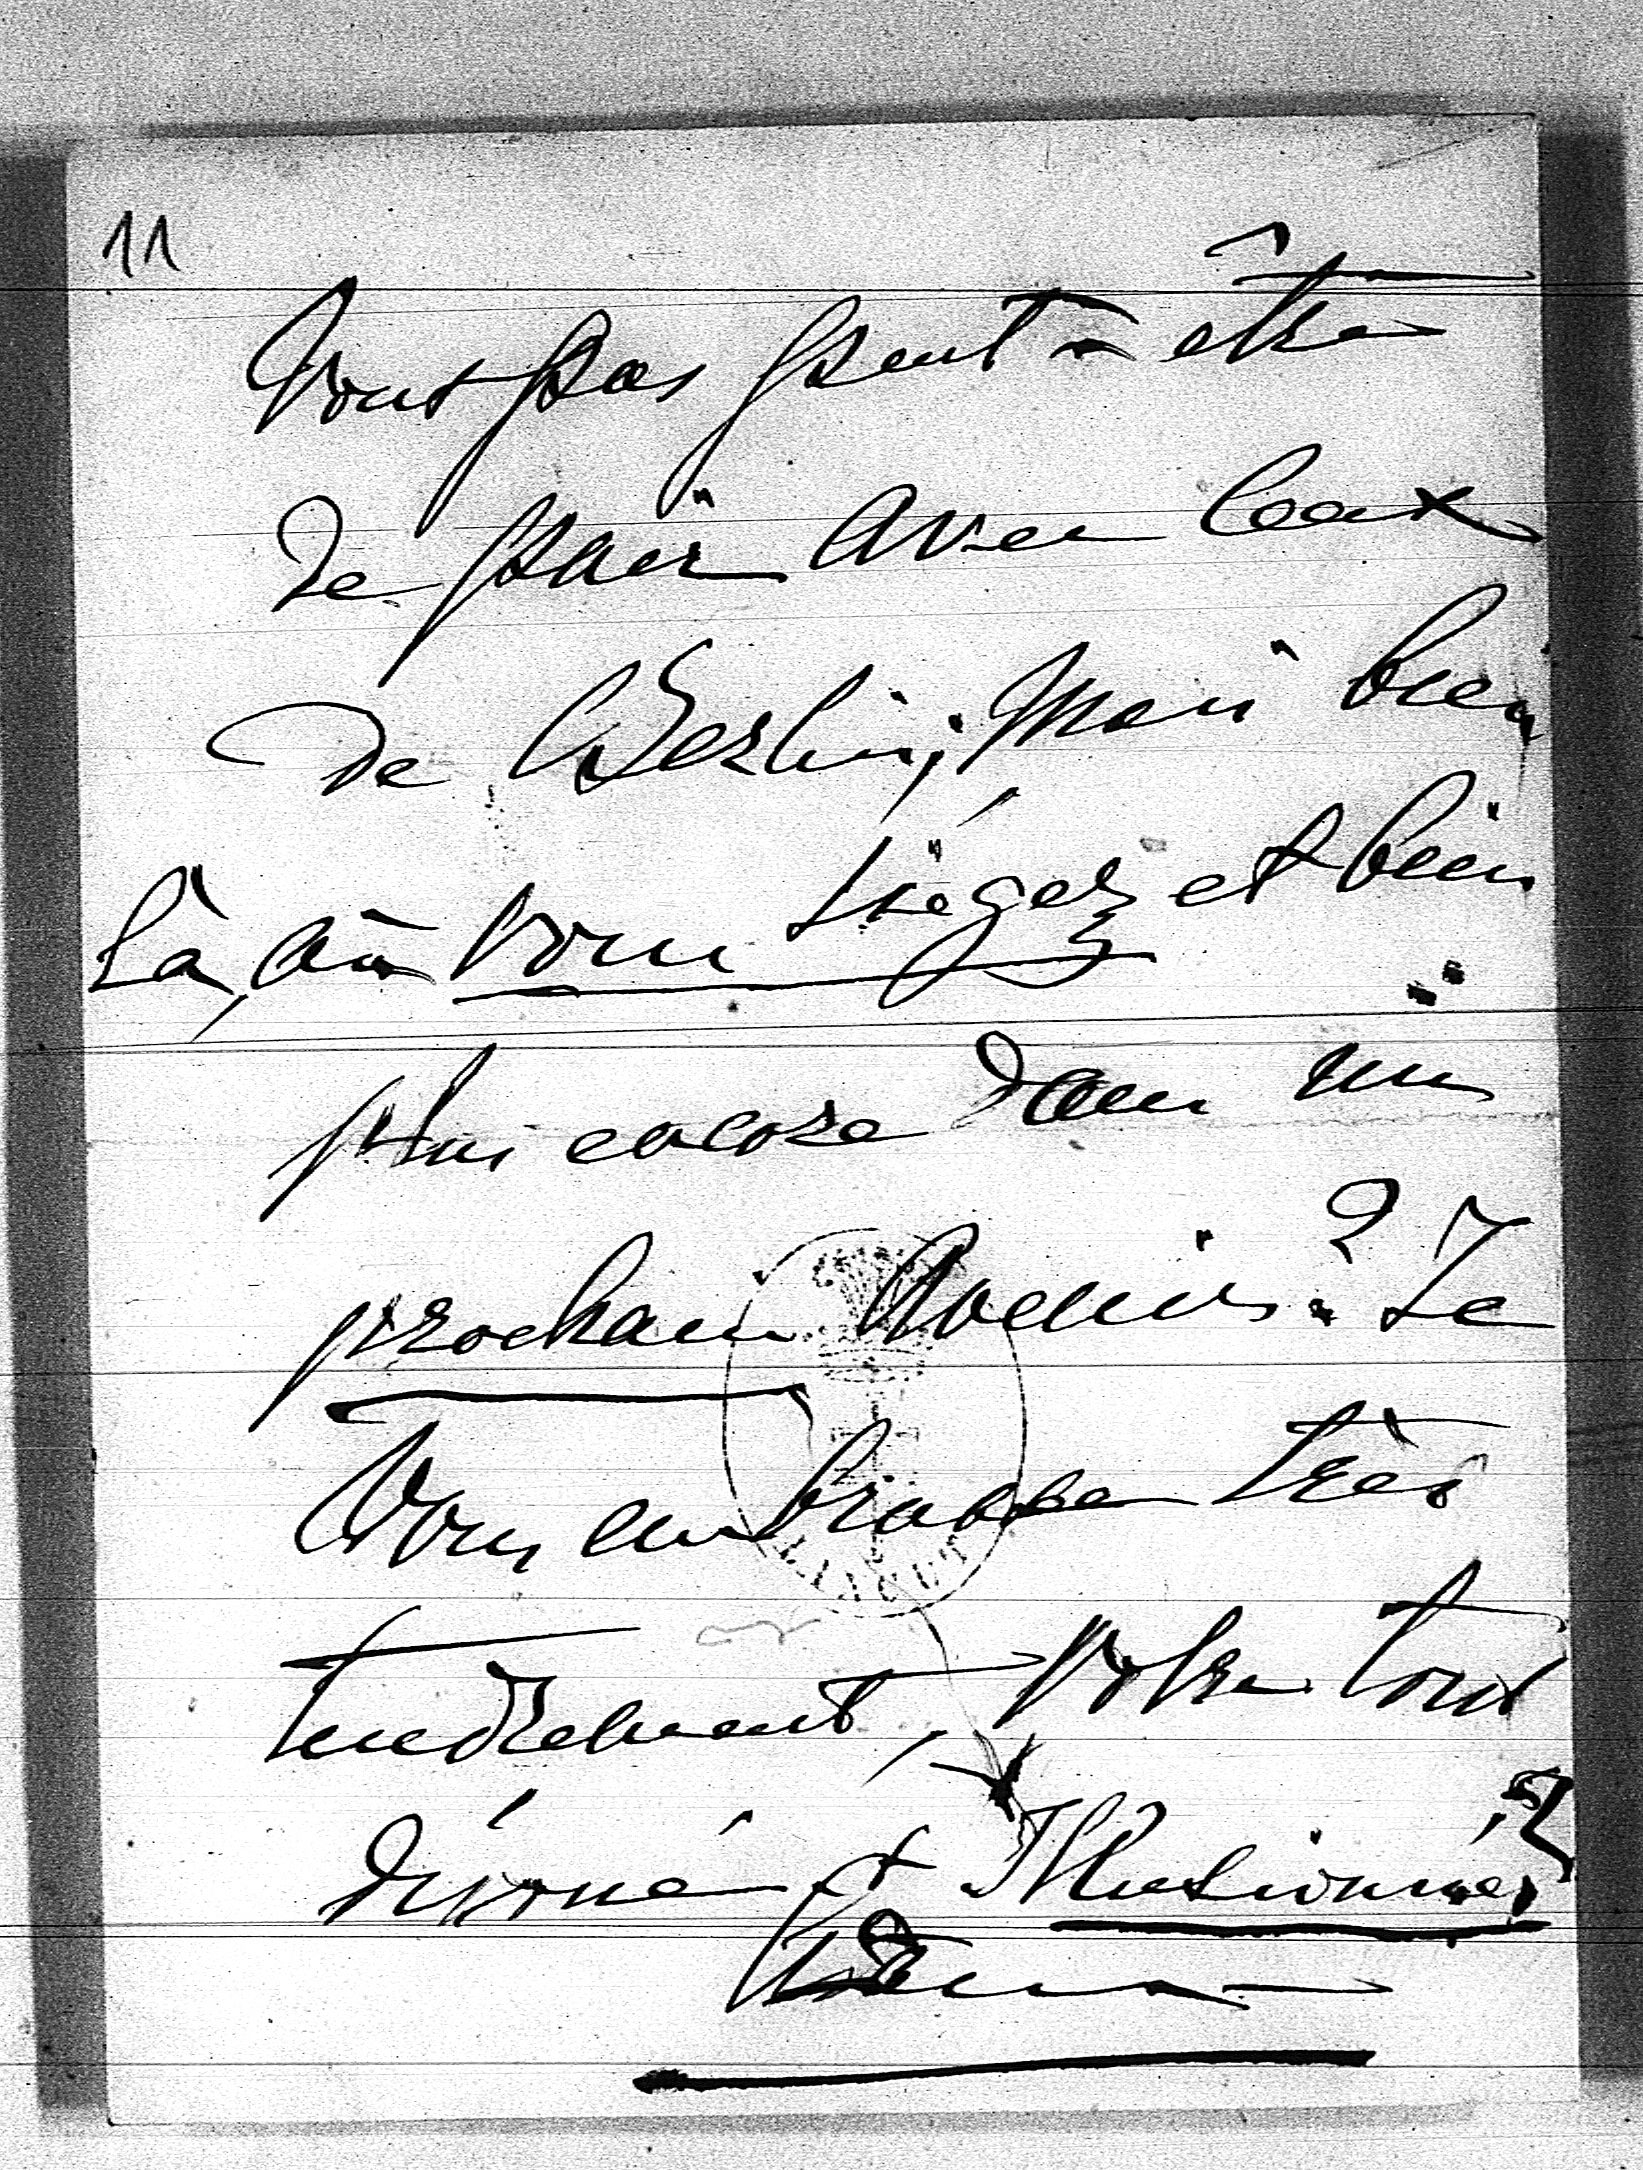 11
vont pas peut-être
de pair avec ceux
de Berlin; mais bien
là, où vous siégez et bien
plus encore dans un
prochain avenir? Je
Vous embrasse très
tendrement, Votre tout
dévoué & Illusionné,
ŁAŃCUT